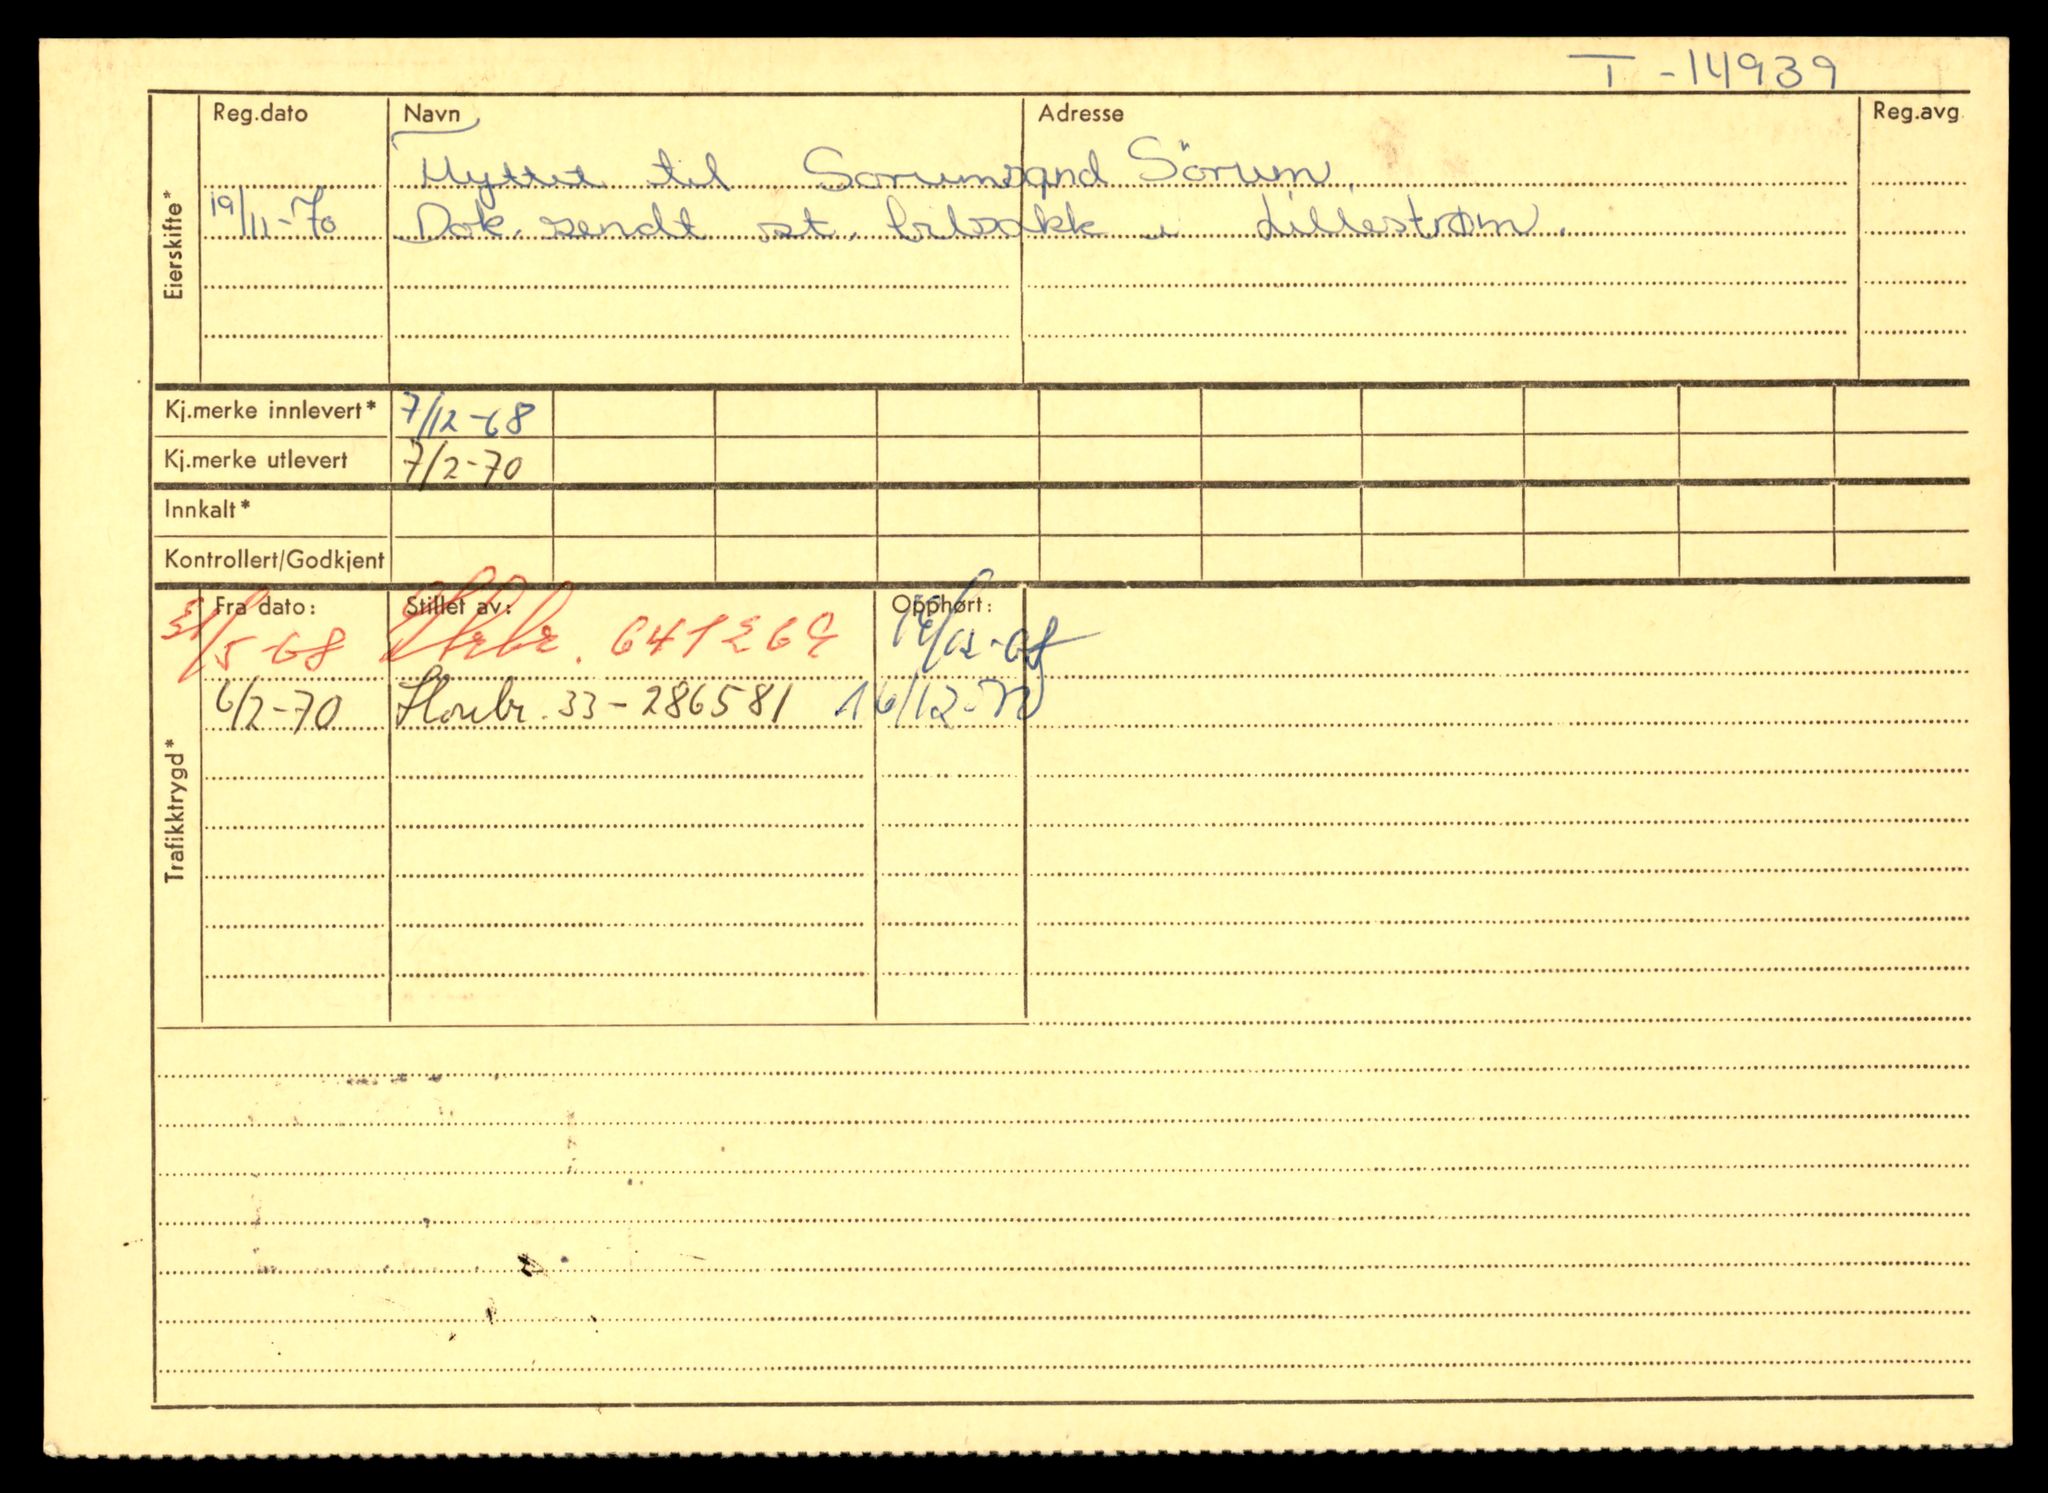 T - 14939
Reg.dato Navn Adresse Reg.avg.
Eierskifte*
Flyttet til Sorumsand Sörum.
19/11-70 Dok. sendt st. bilsakk i Lillestrøm.
Kj.merke innlevert* 7/12-68
Kj.merke utlevert 7/2-70
Innkalt*
Kontrollert/Godkjent
Trafikktrygd*
Fra dato: Stillet av: Opphørt:
/5-68 641269 /12-68
6/2-70 33-286581 16/12-70